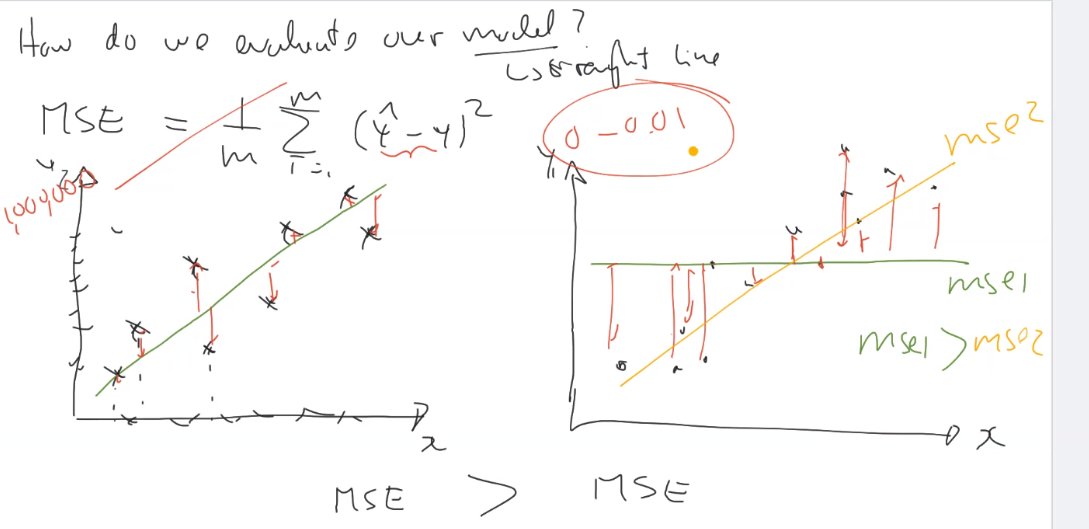 How do we evaluate our model?
↳ straight line
MSE = 1/m m∑i=1 (ŷ-y)²
0 - 0.01
mse2
y
1,000,000
y
mse1
mse1 > mse2
x
x
MSE > MSE